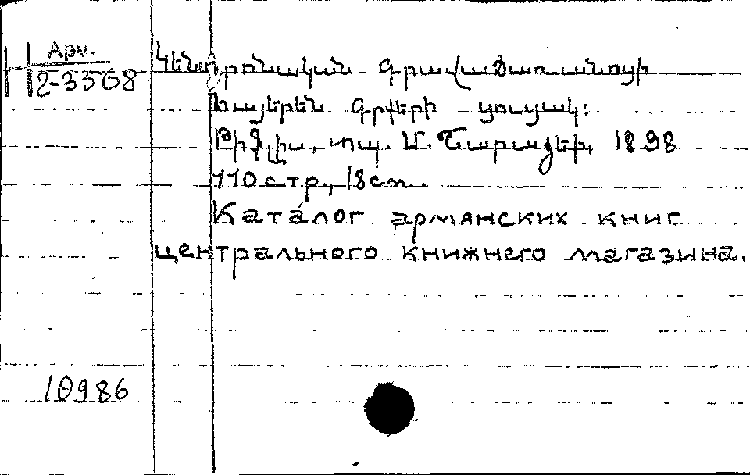 Арм.
Н 2-3568
Կենտրոնական գրավաճառանոցի
հայերեն գրքերի ցուցակ:
Թիֆլիս, տպ. Մ. Շարաձեի, 1898
110 стр., 18 см.
Каталог армянских книг
центрального книжного магазина.
10986